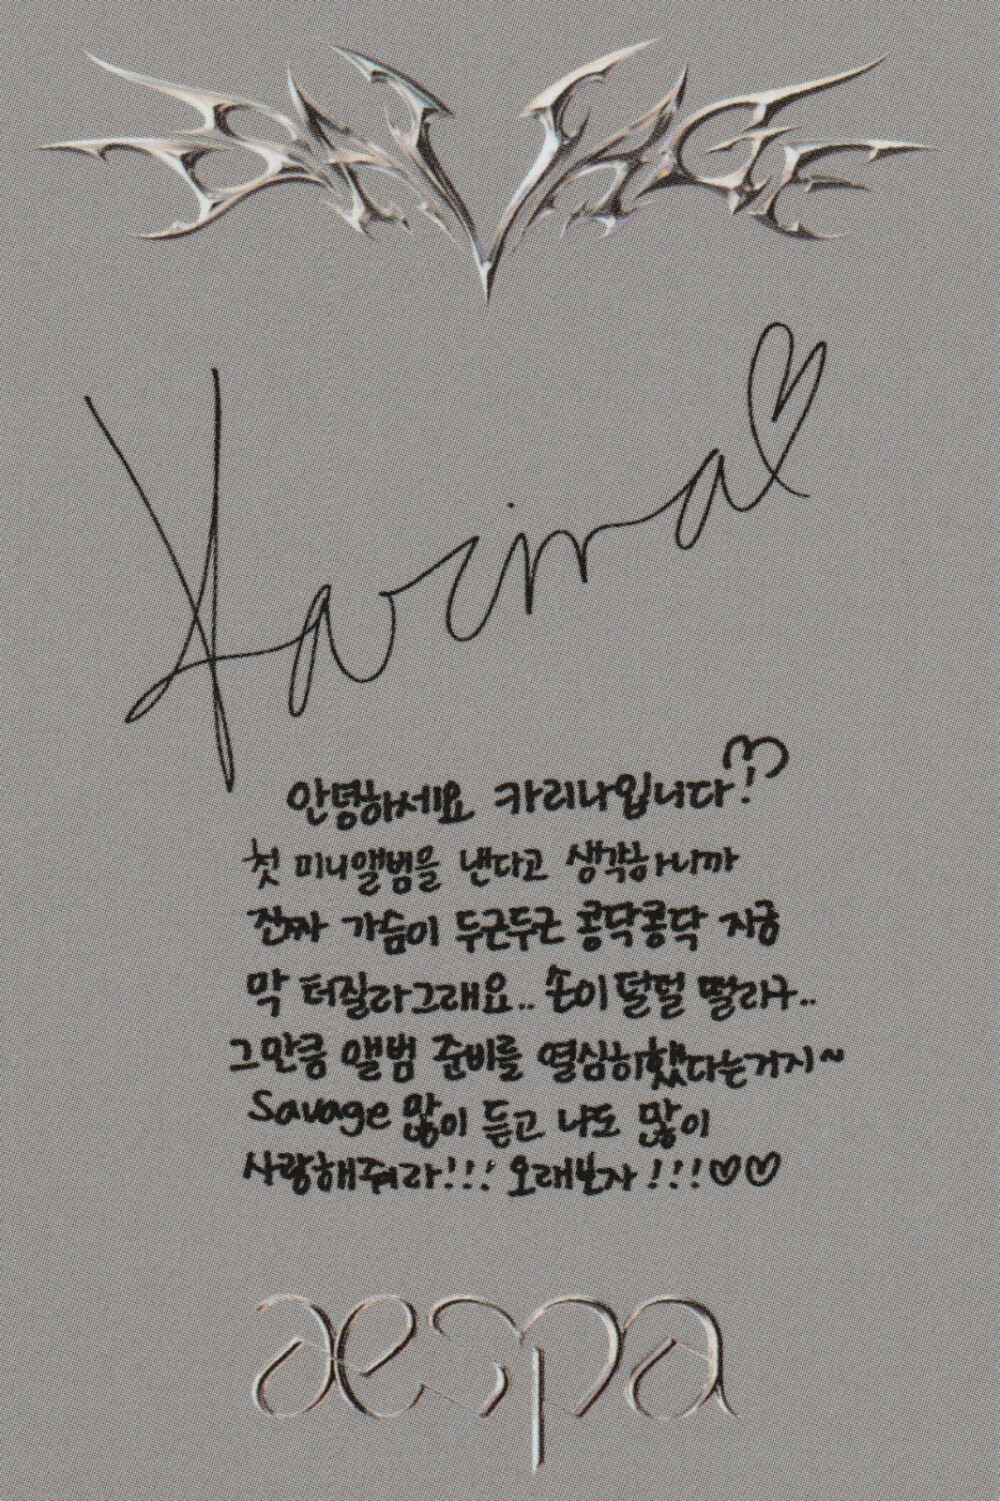 SAVAGE
Karina
안녕하세요 카리나입니다!
첫 미니앨범을 낸다고 생각하니까
진짜 가슴이 두근두근 콩닥콩닥 지금
막 터질라그래요.. 손이 덜덜 떨리구..
그만큼 앨범 준비를 열심히했다는거지~
Savage 많이 듣고 나도 많이
사랑해줘라!!! 오래보자!!!♡♡
aespa